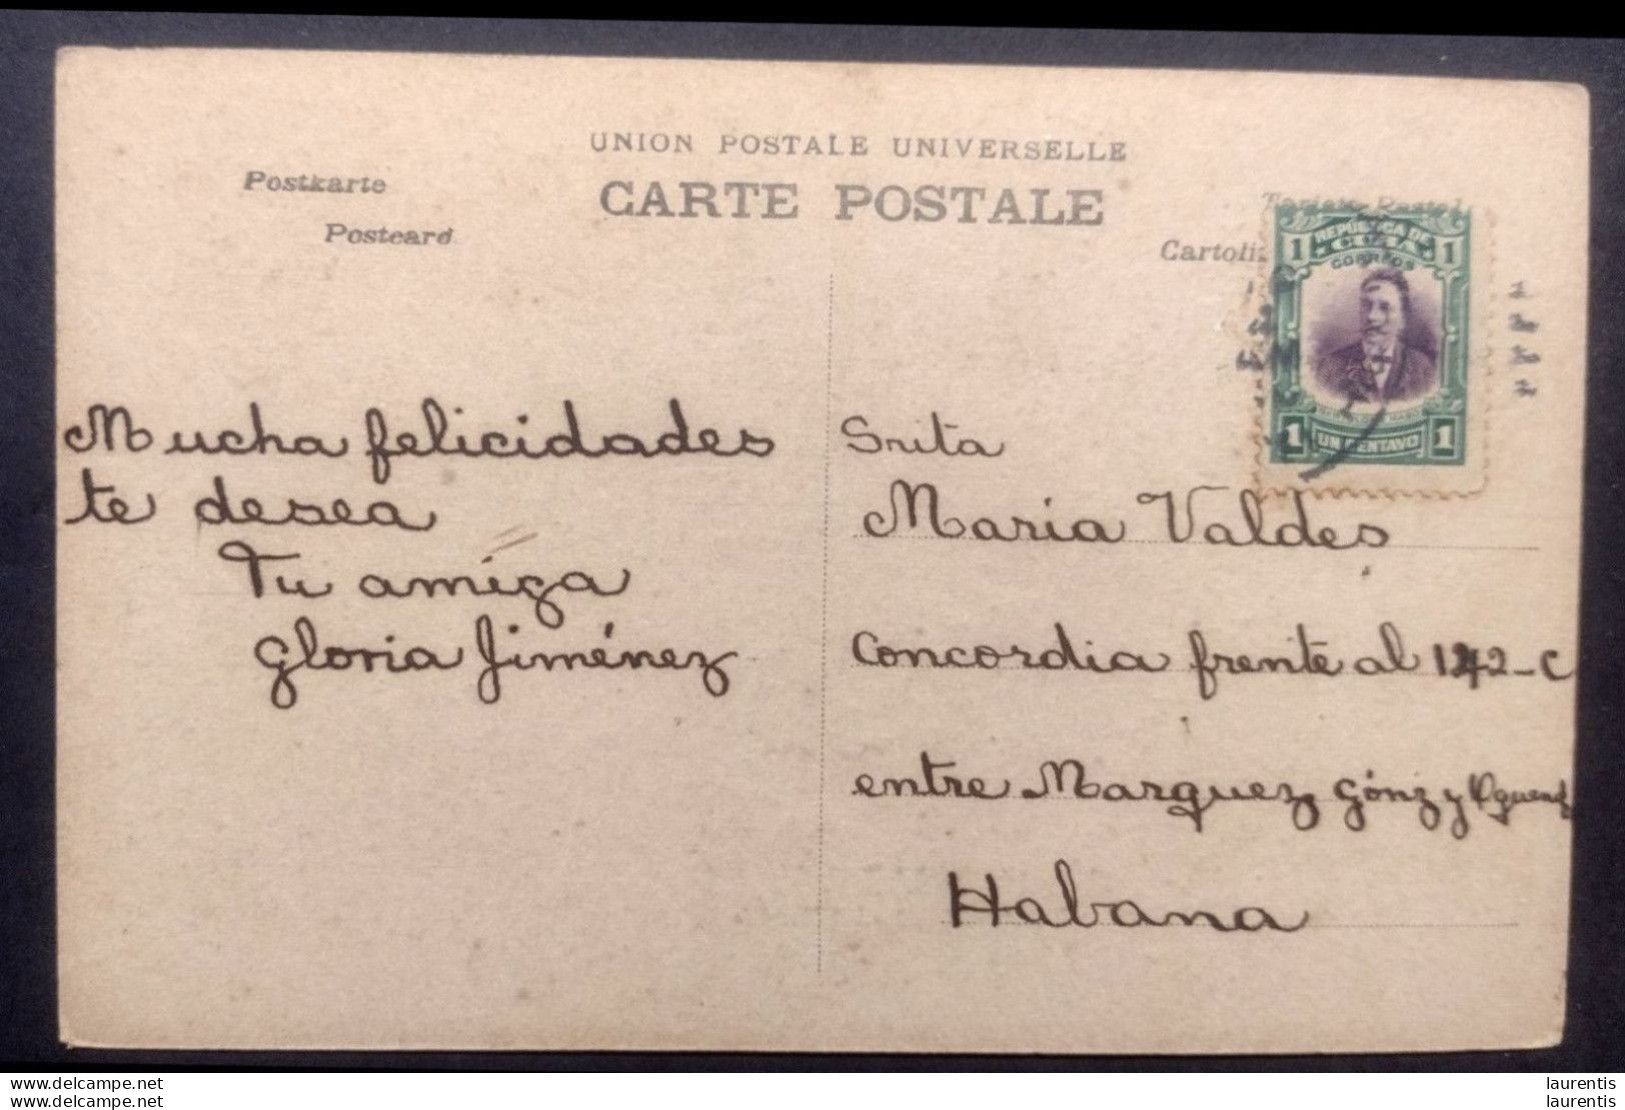 UNION POSTALE UNIVERSELLE
CARTE POSTALE
Postkarte
Postcard
REPUBLICA DE
CUBA
CORREOS
1 1
1 UN CENTAVO 1
Mucha felicidades
te desea
Tu amiga
Gloria Jiménez
Srita
Maria Valdes
Concordia frente al 142-C
entre Marquez Gónz y
Habana
laurentis
laurentis
www.delcampe.net
www.delcampe.net